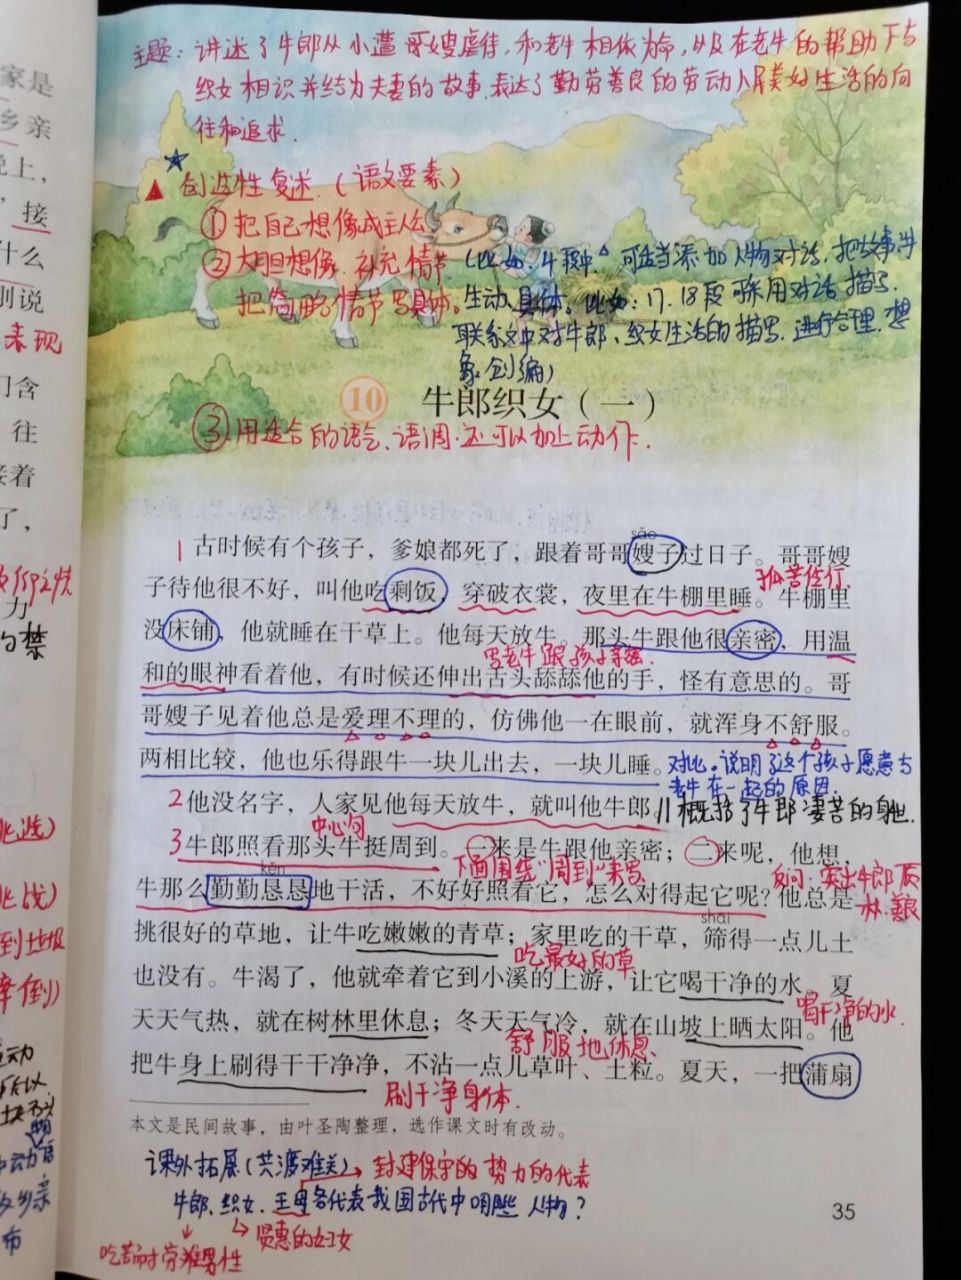 主题：讲述了牛郎从小遭哥嫂虐待，和老牛相依为命，以及在老牛的帮助下与
织女相识并结为夫妻的故事，表达了勤劳善良的劳动人民美好生活的向
往和追求.
创造性复述.（语文要素）
①把自己想像成主人公
②大胆想像.补充情节.
把简略情节写具体。
可适当添加人物对话，把故事
生动具体。比如：17.18段可采用对话描写.
联系文中对牛郎、织女生活的描写.进行合理.想
象创编）
10 牛郎织女（一）
③.用适合的语气、语调.还可以加上动作.
1 古时候有个孩子，爹娘都死了，跟着哥哥嫂子过日子。哥哥嫂
sǎo
子待他很不好，叫他吃剩饭，穿破衣裳，夜里在牛棚里睡。牛棚里
孤苦伶仃.
没床铺，他就睡在干草上。他每天放牛。那头牛跟他很亲密，用温
写老牛跟孩子亲密.
和的眼神看着他，有时候还伸出舌头舔舔他的手，怪有意思的。哥
哥嫂子见着他总是爱理不理的，仿佛他一在眼前，就浑身不舒服。
两相比较，他也乐得跟牛一块儿出去，一块儿睡。
对比。说明了这个孩子愿意与
老牛在一起的原因.
2 他没名字，人家见他每天放牛，就叫他牛郎。
概括了牛郎凄苦的身世.
中心句
3 牛郎照看那头牛挺周到。一来是牛跟他亲密；二来呢，他想，
下面围绕“周到”来写.
kěn
牛那么勤勤恳恳地干活，不好好照看它，怎么对得起它呢？他总是
反问：突出牛郎质
朴.善良
shāi
挑很好的草地，让牛吃嫩嫩的青草；家里吃的干草，筛得一点儿土
吃最好的草
也没有。牛渴了，他就牵着它到小溪的上游，让它喝干净的水。夏
喝干净的水.
天天气热，就在树林里休息；冬天天气冷，就在山坡上晒太阳。他
舒服地休息.
把牛身上刷得干干净净，不沾一点儿草叶、土粒。夏天，一把蒲扇
刷干净身体.
本文是民间故事，由叶圣陶整理，选作课文时有改动。
课外拓展（共渡难关）
封建保守的势力的代表
牛郎、织女.王母各代表我国古代中哪些人物？
贤惠的妇女
吃苦耐劳男性
35
家是
乡亲
晚上，
接
什么
别说
表现
门含
往
接着
了，
力
的禁
挑选）
挑战）
到垃圾